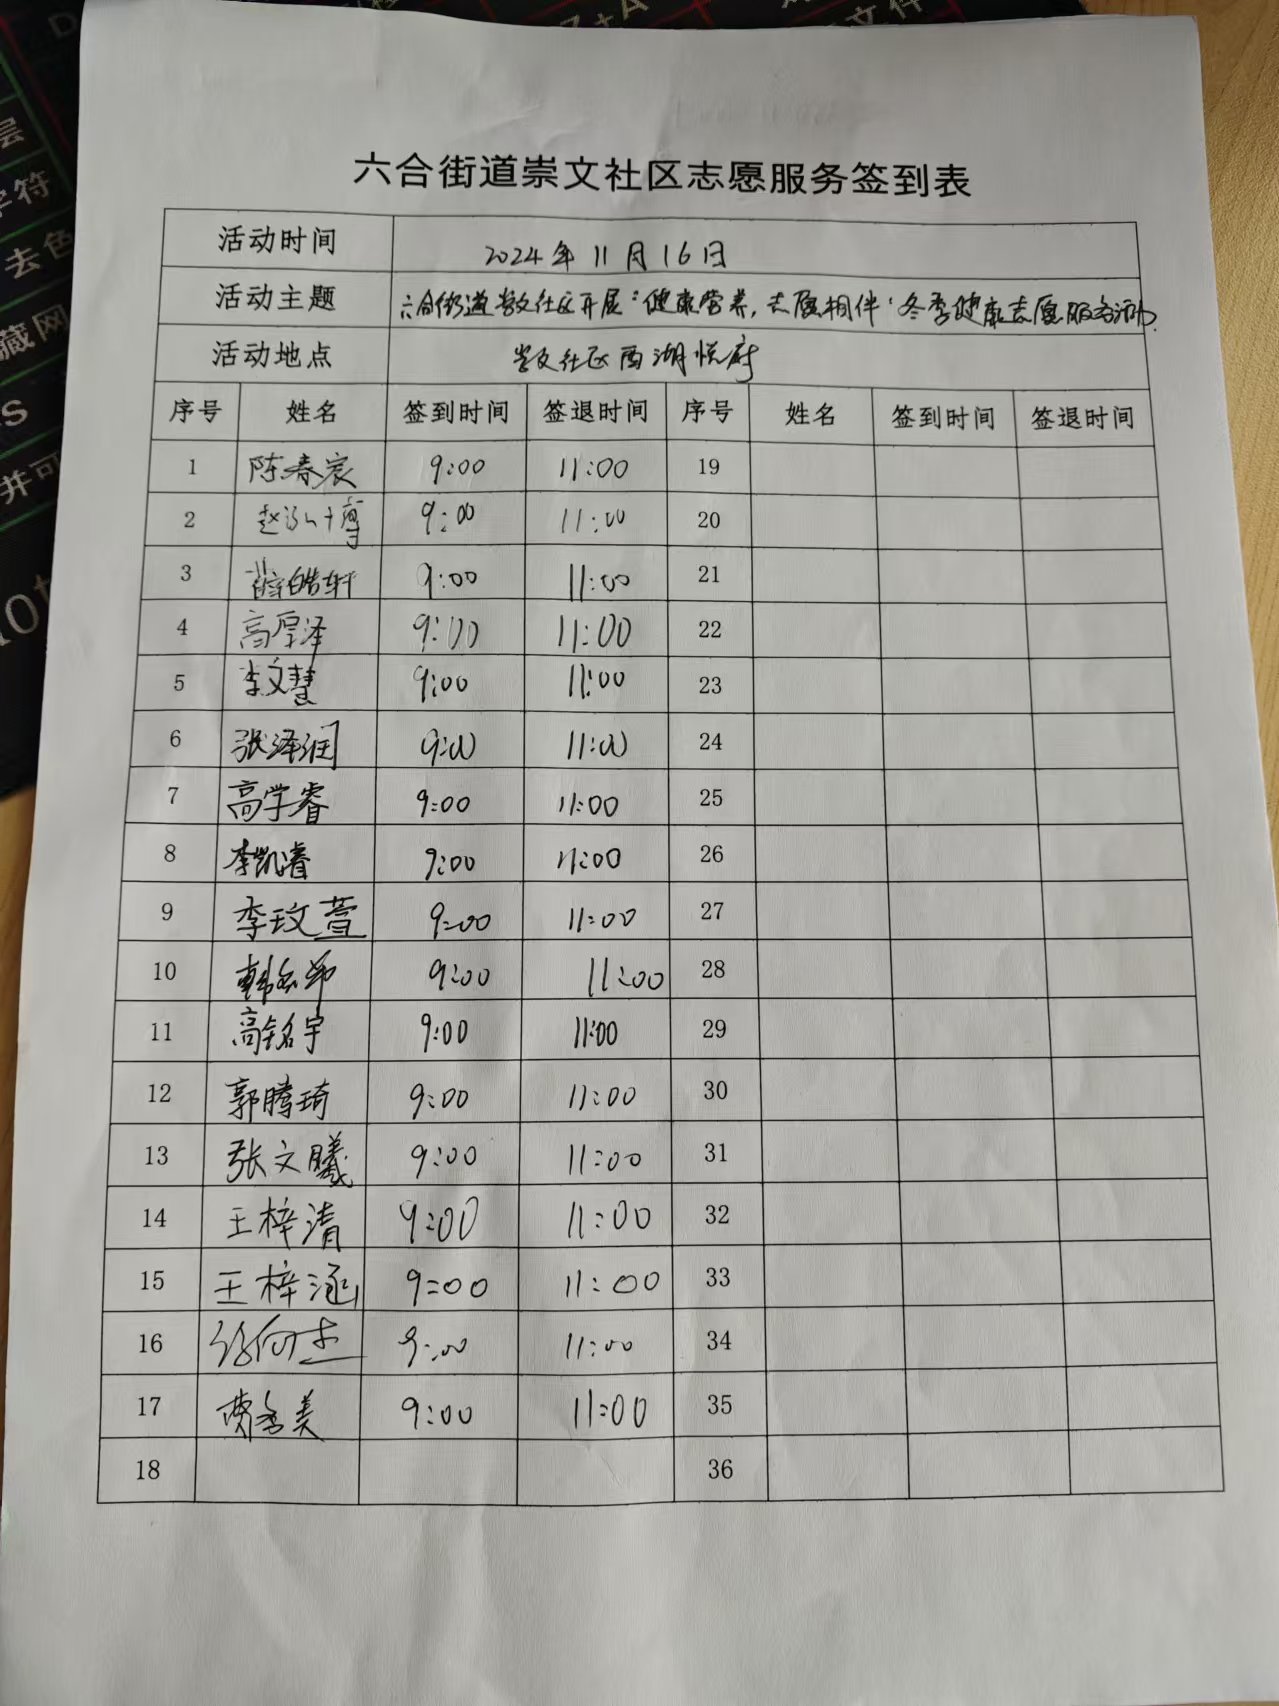 六合街道崇文社区志愿服务签到表
活动时间 2024年11月16日
活动主题 六合街道崇文社区开展"健康营养,志愿相伴"冬季健康志愿服务活动.
活动地点 崇文社区西湖悦府
序号 姓名 签到时间 签退时间 序号 姓名 签到时间 签退时间
1 陈春宸 9:00 11:00 19
2 赵 9:00 11:00 20
3 薛皓轩 9:00 11:00 21
4 高厚泽 9:00 11:00 22
5 李文慧 9:00 11:00 23
6 张泽润 9:00 11:00 24
7 高学睿 9:00 11:00 25
8 李凯睿 9:00 11:00 26
9 李玟萱 9:00 11:00 27
10 韩 9:00 11:00 28
11 高铭宇 9:00 11:00 29
12 郭腾琦 9:00 11:00 30
13 张文曦 9:00 11:00 31
14 王梓清 9:00 11:00 32
15 王梓涵 9:00 11:00 33
16 9:00 11:00 34
17 费秀美 9:00 11:00 35
18 36
层
字符
去色
藏网
并可
文件